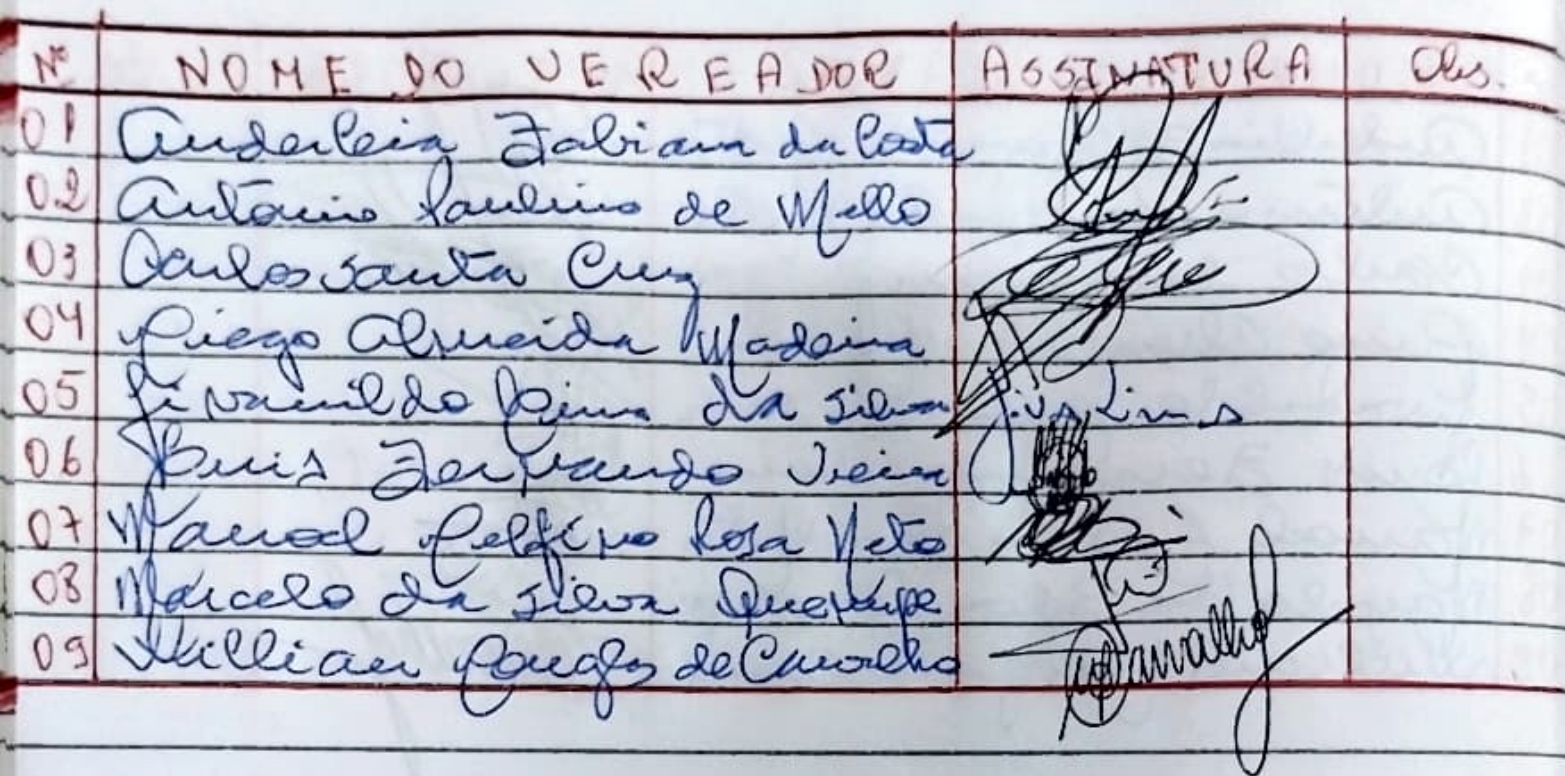 Nº NOME DO VEREADOR ASSINATURA Obs.
01 Anderleia Fabiana da Costa
02 Antônio Paulino de Mello
03 Carlos Santa Cruz
04 Diego Almeida Madeira
05 Givanildo Lima da Silva
06 Luis Fernando Vieira
07 Manoel Delfino Rosa Neto
08 Marcelo da Silva
09 Willian Douglas de Carvalho Carvalho